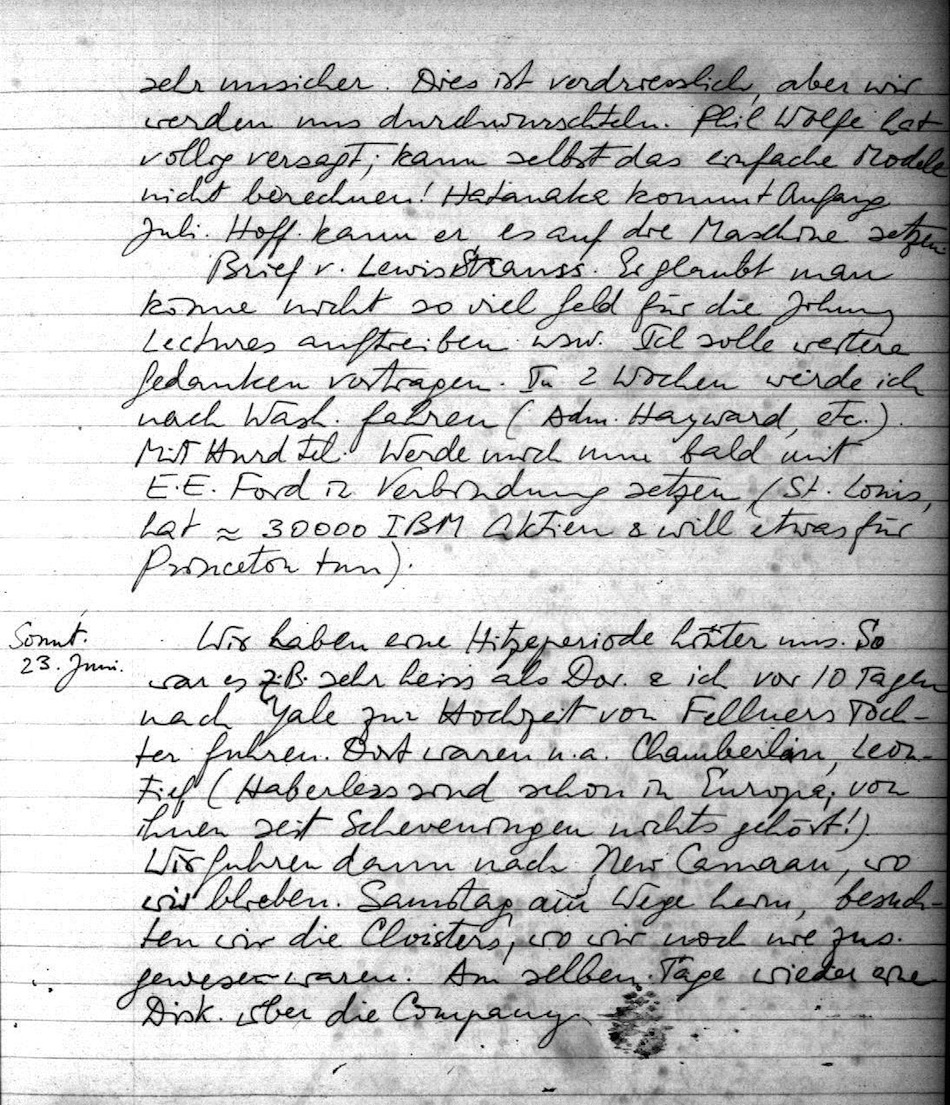 sehr unsicher. Dies ist verdriesslich, aber wir
werden uns durchwurschteln. Phil Wolfe hat
völlig versagt; kann selbst das einfache Modell
nicht berechnen! Hatanaka kommt Anfang
Juli. Hoff. kann er es auf die Maschine setzen
Brief v. Lewis Strauss. Er glaubt man
könne nicht so viel Geld für die Johnny
Lectures auftreiben usw. Ich solle weitere
Gedanken vortragen. In 2 Wochen werde ich
nach Wash. fahren (Adm. Hayward, etc.).
Mit Hurd Tel. Werde mich nun bald mit
E.E. Ford in Verbindung setzen (St. Louis,
hat ≈ 30000 IBM Aktien & will etwas für
Princeton tun).
Sonnt.
23. Juni.
Wir haben eine Hitzeperiode hinter uns. So
war es z.B. sehr heiss als Dor. & ich vor 10 Tagen
nach Yale zur Hochzeit von Fellners Toch-
ter fuhren. Dort waren u.a. Chamberlin, Leon-
tief (Haberlers sind schon in Europa, von
ihnen seit Scheveningen nichts gehört!).
Wir fuhren dann nach New Canaan, wo
wir blieben. Samstag, am Wege heim, besuch-
ten wir die Cloisters, wo wir noch nie zus.
gewesen waren. Am selben Tage wieder eine
Disk. über die Company.